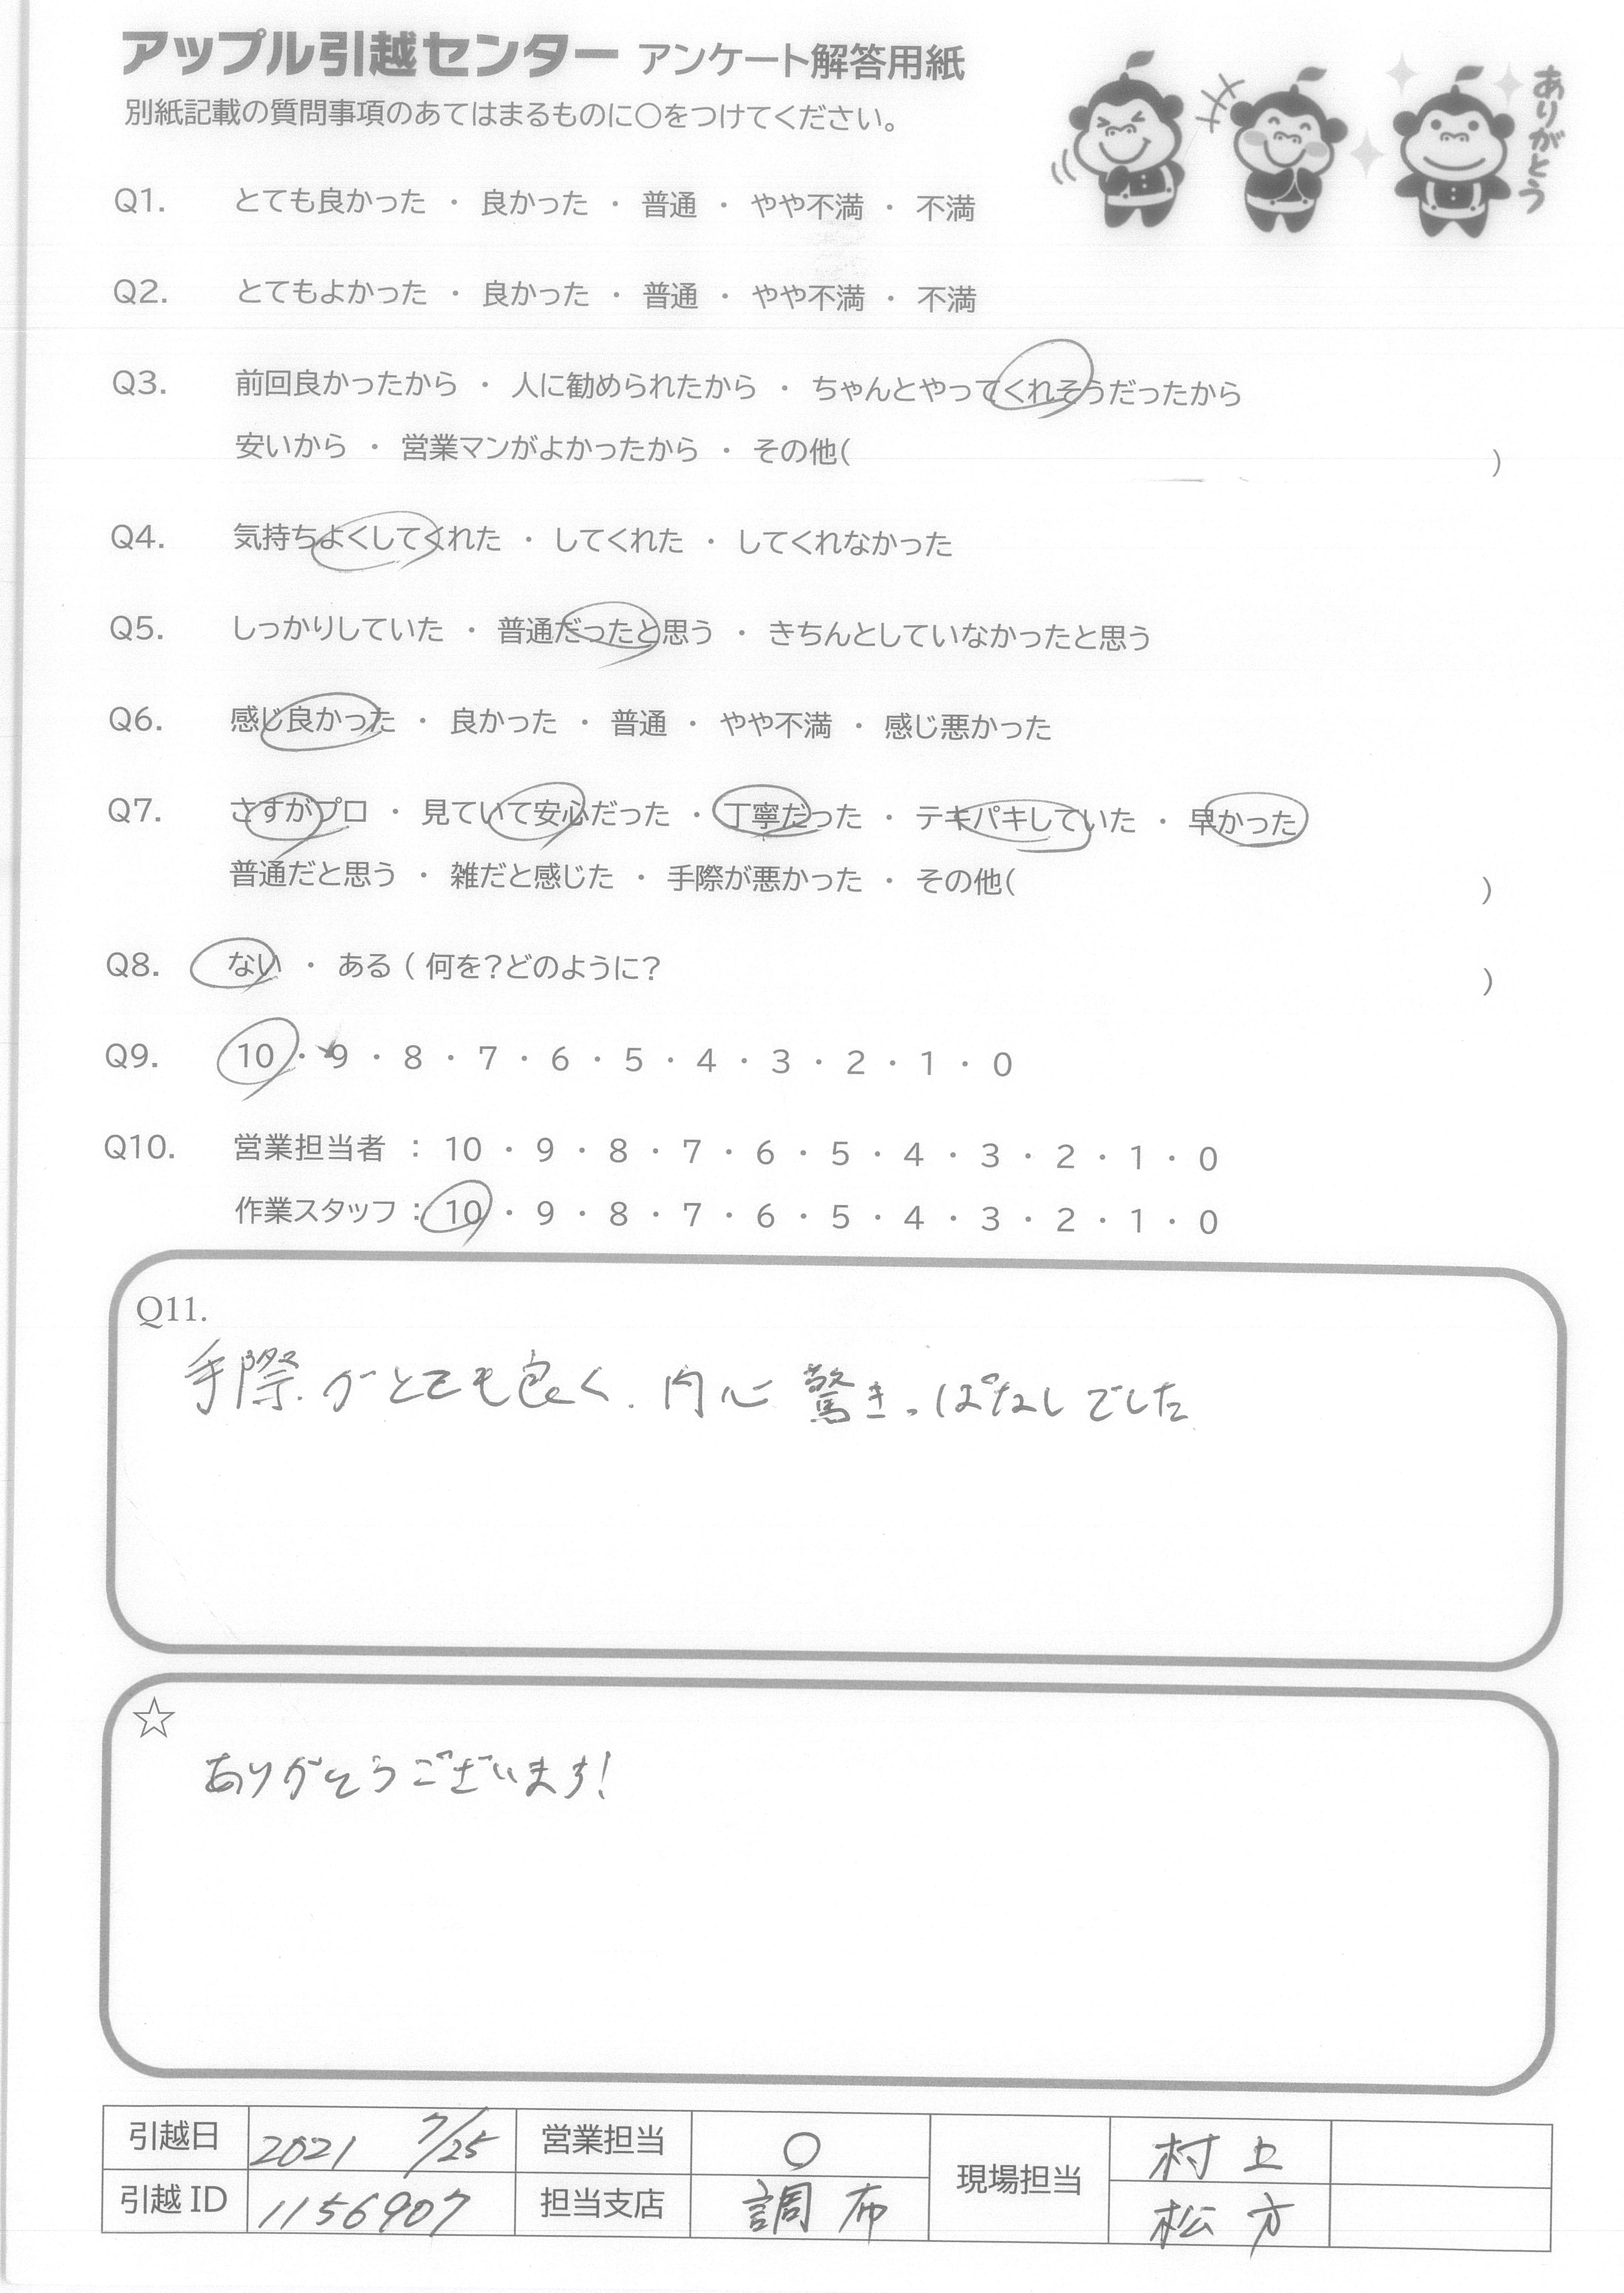 アップル引越センター アンケート解答用紙
別紙記載の質問事項のあてはまるものに○をつけてください。
ありがとう
Q1. とても良かった ・ 良かった ・ 普通 ・ やや不満 ・ 不満
Q2. とてもよかった ・ 良かった ・ 普通 ・ やや不満 ・ 不満
Q3. 前回良かったから ・ 人に勧められたから ・ ちゃんとやってくれそうだったから
安いから ・ 営業マンがよかったから ・ その他( )
Q4. 気持ちよくしてくれた ・ してくれた ・ してくれなかった
Q5. しっかりしていた ・ 普通だったと思う ・ きちんとしていなかったと思う
Q6. 感じ良かった ・ 良かった ・ 普通 ・ やや不満 ・ 感じ悪かった
Q7. さすがプロ ・ 見ていて安心だった ・ 丁寧だった ・ テキパキしていた ・ 早かった
普通だと思う ・ 雑だと感じた ・ 手際が悪かった ・ その他( )
Q8. ない ・ ある ( 何を?どのように? )
Q9. 10 ・ 9 ・ 8 ・ 7 ・ 6 ・ 5 ・ 4 ・ 3 ・ 2 ・ 1 ・ 0
Q10. 営業担当者 : 10 ・ 9 ・ 8 ・ 7 ・ 6 ・ 5 ・ 4 ・ 3 ・ 2 ・ 1 ・ 0
作業スタッフ : 10 ・ 9 ・ 8 ・ 7 ・ 6 ・ 5 ・ 4 ・ 3 ・ 2 ・ 1 ・ 0
Q11.
手際がとても良く、内心 驚きっぱなしでした
☆
ありがとうございます!
引越日 2021 7/25 営業担当 ○ 現場担当 村上
引越 ID 1156907 担当支店 調布 松方